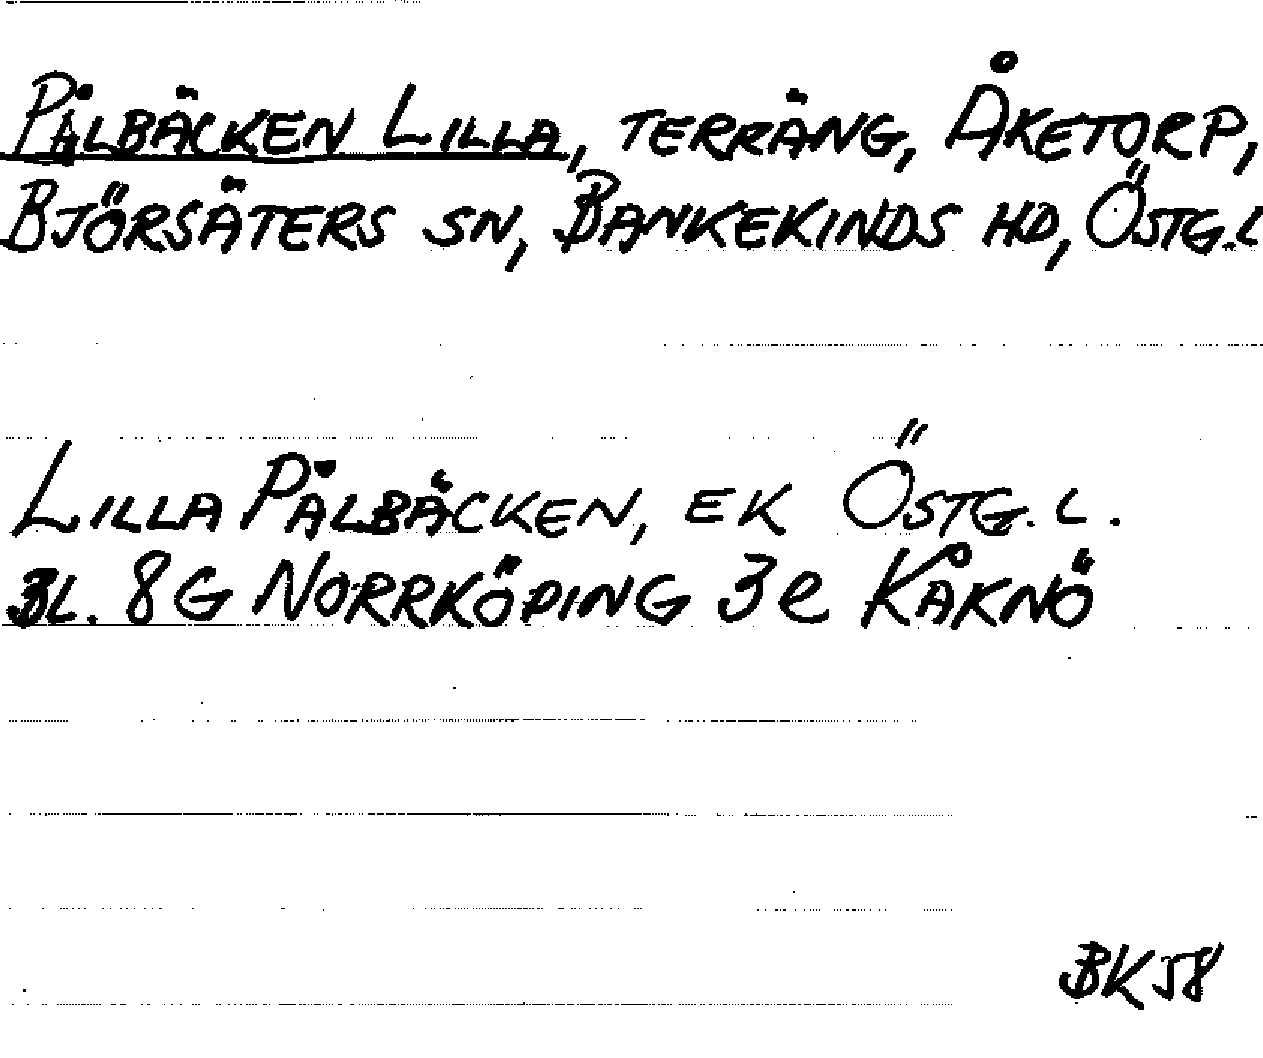 PÅLBÄCKEN LILLA, TERRÄNG, ÅKETORP,
BJÖRSÄTERS SN, BANKEKINDS HD, ÖSTG.L
LILLA PÅLBÄCKEN, EK ÖSTG. L.
BL. 8G NORRKÖPING 3e KÅKNÖ
BK58